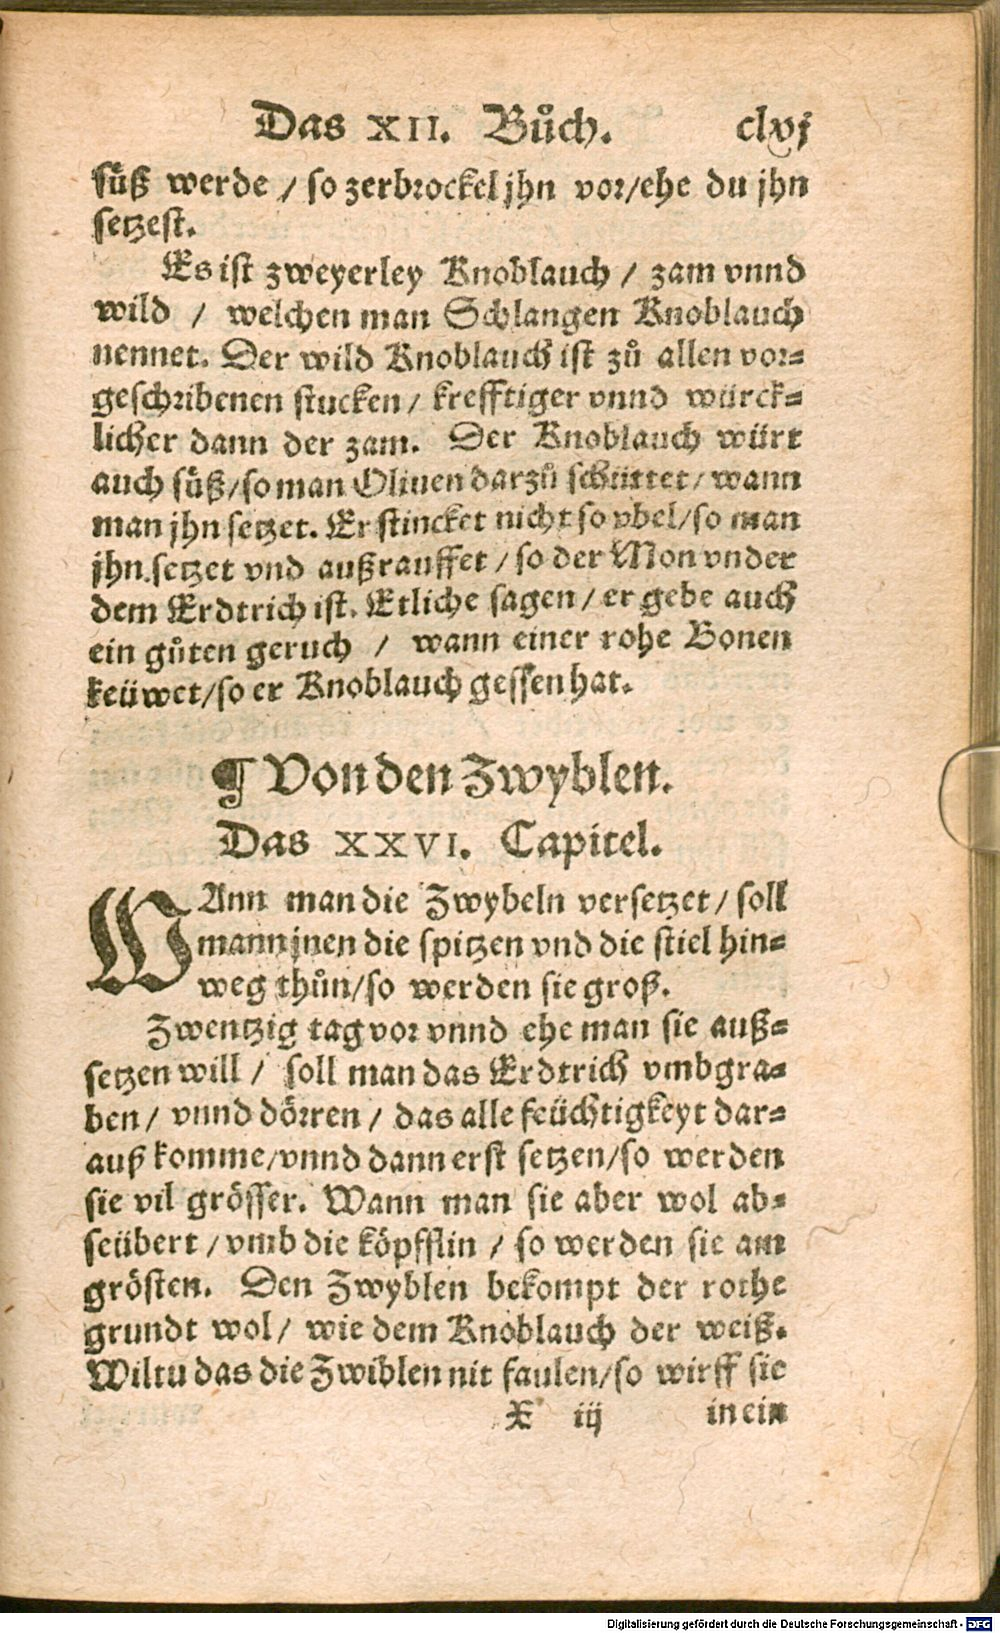 Das XII. Bůch. clxj
süß werde / so zerbrockel jhn vor/ehe du jhn
setzest.
Es ist zweyerley Knoblauch / zam vnnd
wild / welchen man Schlangen Knoblauch
nennet. Der wild Knoblauch ist zů allen vor=
geschribenen stucken / krefftiger vnnd würck=
licher dann der zam. Der Knoblauch würt
auch süß/so man Oliuen darzů schüttet/wann
man jhn setzet. Er stincket nicht so vbel/so man
jhn setzet vnd außrauffet / so der Mon vnder
dem Erdtrich ist. Etliche sagen / er gebe auch
ein gůten geruch / wann einer rohe Bonen
keüwet/so er Knoblauch gessen hat.
¶ Von den Zwyblen.
Das XXVI. Capitel.
WAnn man die Zwybeln versetzet / soll
mann jnen die spitzen vnd die stiel hin=
weg thůn/so werden sie groß.
Zwentzig tag vor vnnd ehe man sie auß=
setzen will / soll man das Erdtrich vmbgra=
ben / vnnd dörren / das alle feüchtigkeyt dar=
auß komme/vnnd dann erst setzen/so werden
sie vil grösser. Wann man sie aber wol ab=
seübert / vmb die köpfflin / so werden sie am
grösten. Den Zwyblen bekompt der rothe
grundt wol / wie dem Knoblauch der weiß.
Wiltu das die Zwiblen nit faulen/so wirff sie
X iij in ein
Digitalisierung gefördert durch die Deutsche Forschungsgemeinschaft - DFG